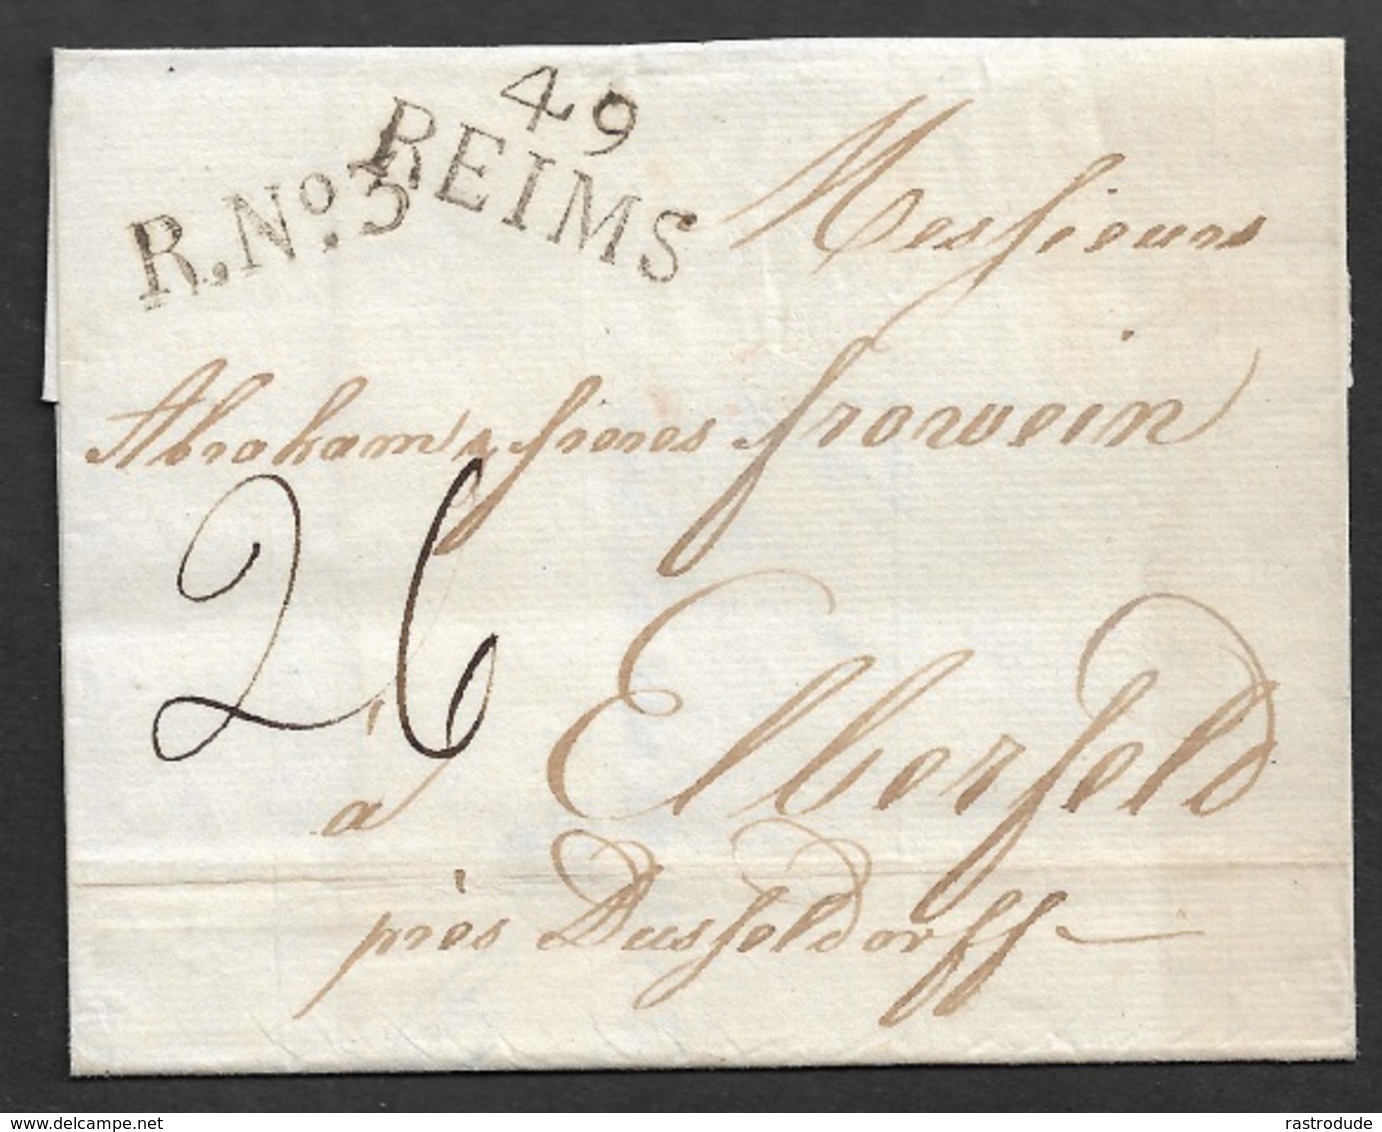 49
REIMS
R.No.3
Messieurs
Abraham & freres frowein
26
a Elberfeld
près Dusseldorff
www.delcampe.net
rastrodude